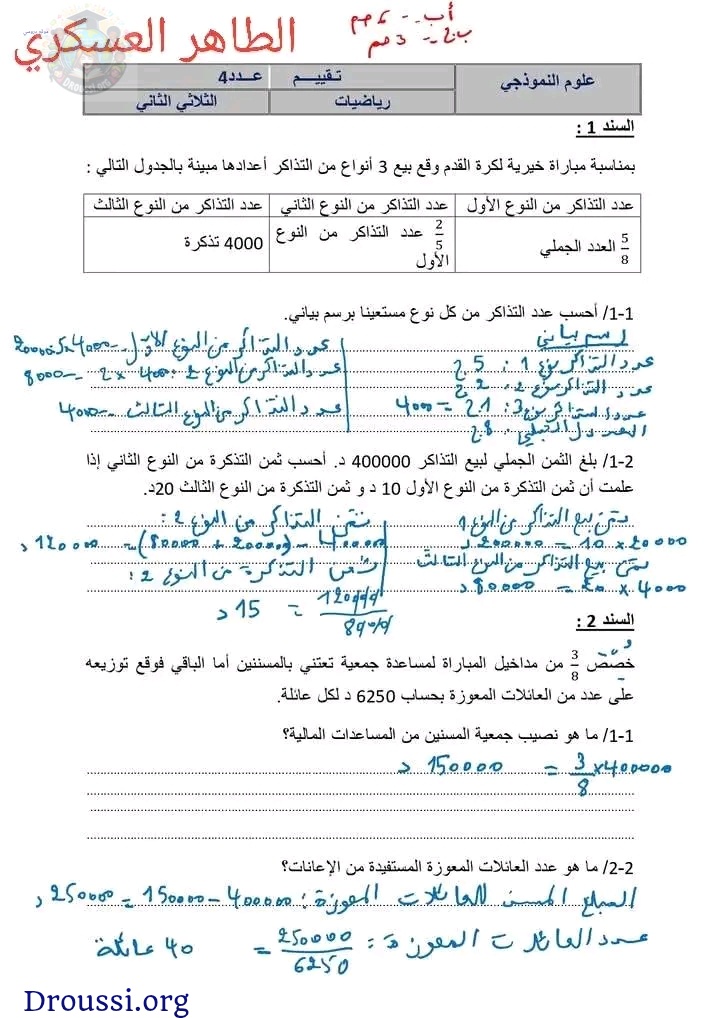 أب -- 6 صم
ب ج -- 3 صم
الطاهر العسكري
DROUSSI.ORG
علوم النموذجي
تقييم عدد4
رياضيات
الثلاثي الثاني
السند 1 :
بمناسبة مباراة خيرية لكرة القدم وقع بيع 3 أنواع من التذاكر أعدادها مبينة بالجدول التالي :
عدد التذاكر من النوع الأول عدد التذاكر من النوع الثاني عدد التذاكر من النوع الثالث
5/8 العدد الجملي
2/5 عدد التذاكر من النوع الأول
4000 تذكرة
1-1/ أحسب عدد التذاكر من كل نوع مستعينا برسم بياني.
رسم بياني
عدد التذاكر نوع 1 : 5 ج
عدد التذاكر نوع 2 : 2 ج
عدد التذاكر نوع 3 : 1 ج = 400
العدد الجملي : 8 ج
عدد التذاكر من النوع الأول -- 4000x5 20000
عدد التذاكر من النوع 2 : 400 x 2 -- 8000
عدد التذاكر من النوع الثالث -- 4000
1-2/ بلغ الثمن الجملي لبيع التذاكر 400000 د. أحسب ثمن التذكرة من النوع الثاني إذا
علمت أن ثمن التذكرة من النوع الأول 10 د و ثمن التذكرة من النوع الثالث 20د.
ثمن بيع التذاكر من النوع 1
20000 x 10 = 200000 د
ثمن بيع التذاكر من النوع الثالث
4000 x 20 = 80000 د
ثمن التذاكر من النوع 2 :
400000 - (200000 + 80000) = 120000 د
ثمن التذكرة من النوع 2 :
120000/8000 = 15 د
السند 2 :
خُصّصَ 3/8 من مداخيل المباراة لمساعدة جمعية تعتني بالمسننين أما الباقي فوقع توزيعه
على عدد من العائلات المعوزة بحساب 6250 د لكل عائلة.
1-1/ ما هو نصيب جمعية المسنين من المساعدات المالية؟
400000 x 3/8 = 150000 د
2-2/ ما هو عدد العائلات المعوزة المستفيدة من الإعانات؟
المبلغ المسند للعائلات المعوزة : 400000 - 150000 = 250000 د
عدد العائلات المعوزة : 250000/6250 = 40 عائلة
Droussi.org